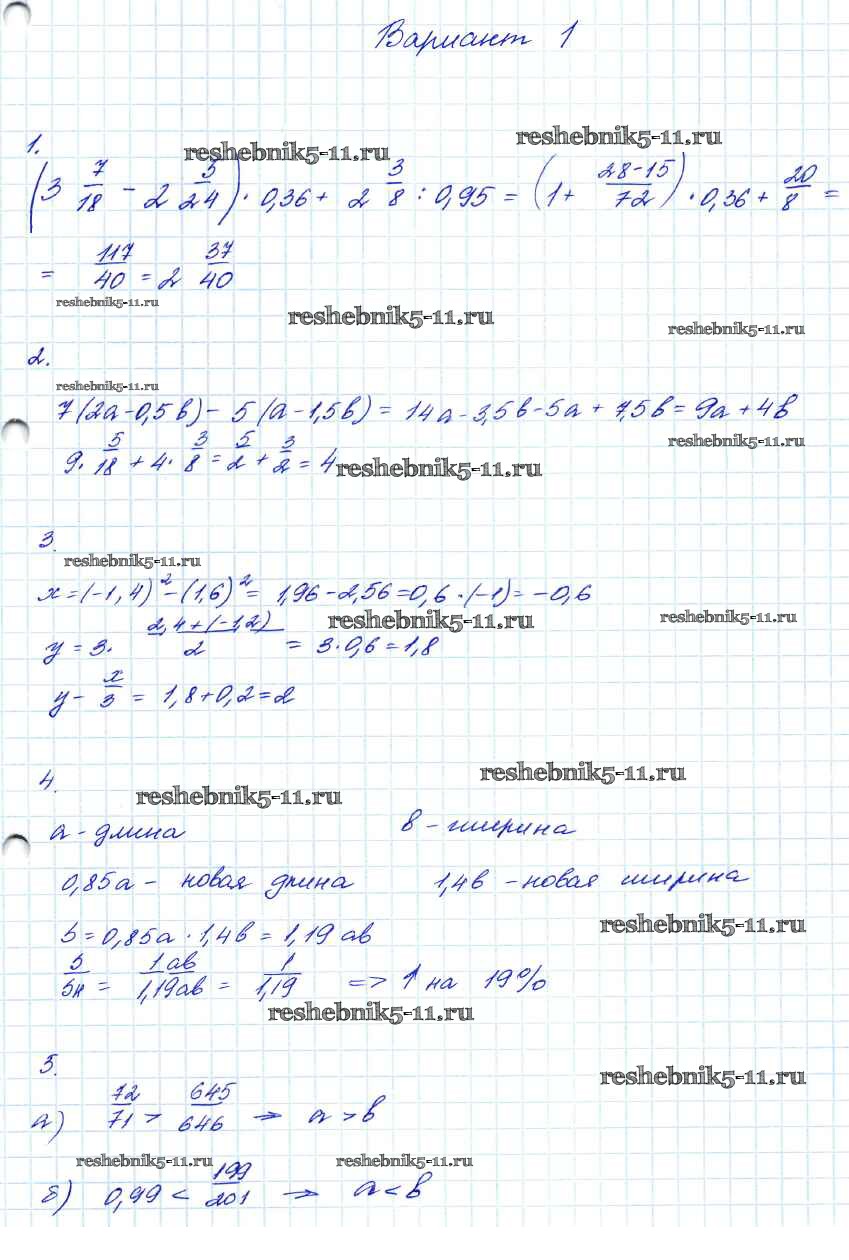 Вариант 1
1.
reshebnik5-11.ru reshebnik5-11.ru
(3 7/18 - 2 5/24) · 0,36 + 2 3/8 : 0,95 = (1 + 28-15/72) · 0,36 + 20/8 =
= 117/40 = 2 37/40
reshebnik5-11.ru reshebnik5-11.ru reshebnik5-11.ru
2.
reshebnik5-11.ru
7(2a - 0,5b) - 5(a - 1,5b) = 14a - 3,5b - 5a + 7,5b = 9a + 4b
9 · 5/18 + 4 · 3/8 = 5/2 + 3/2 = 4
reshebnik5-11.ru reshebnik5-11.ru
3.
reshebnik5-11.ru
x = (-1,4)² - (1,6)² = 1,96 - 2,56 = 0,6 · (-1) = -0,6
reshebnik5-11.ru reshebnik5-11.ru
y = 3 · 2,4+(-1,2)/2 = 3 · 0,6 = 1,8
y - x/3 = 1,8 + 0,2 = 2
4.
reshebnik5-11.ru reshebnik5-11.ru
a - длина b - ширина
0,85a - новая длина 1,4b - новая ширина
reshebnik5-11.ru
S = 0,85a · 1,4b = 1,19 ab
S/Sн = 1ab/1,19ab = 1/1,19 => ↑ на 19%
reshebnik5-11.ru
5.
reshebnik5-11.ru
а) 72/71 > 645/646 → a > b
reshebnik5-11.ru reshebnik5-11.ru
б) 0,99 < 199/201 → a < b